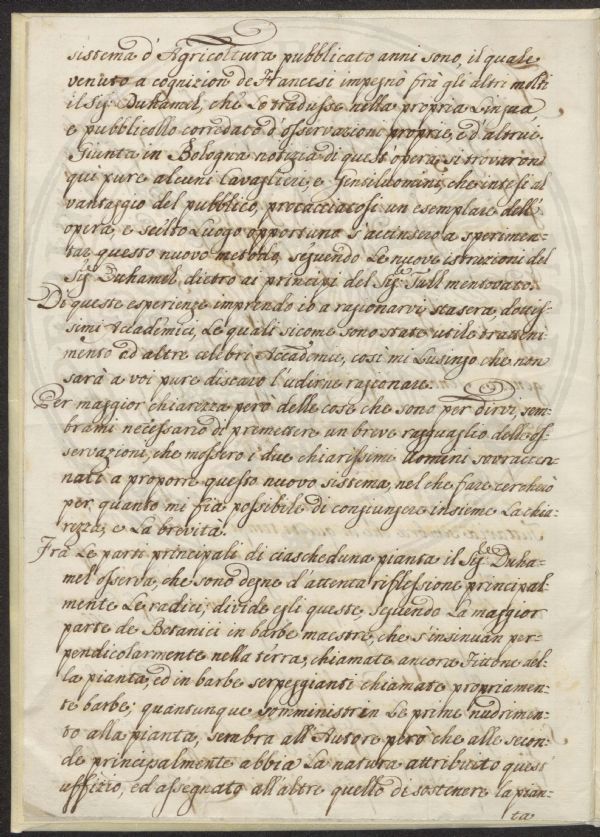 sistema d'Agricoltura pubblicato anni sono, il quale
venuto a cognizion de Francesi impegnò frà gli altri molti
il Sig: Duhamel, che Lo tradusse nella propria Lingua
e pubblicollo corredato d'osservazioni proprie, e d'altrui.
Giunta in Bologna notizia di quest'opera si trovarono
qui pure alcuni Cavaglieri, e Gentiluomini, che intesi al
vantaggio del pubblico, procacciatosi un esemplare dell'
opera, e scelto Luogo opportuno s'accinsero a sperimen=
tar questo nuovo metodo, seguendo Le nuove istruzioni del
Sig: Duhamel dietro ai principi del Sig:le Tull mentovato.
Di queste esperienze imprendo io a ragionarvi stasera dottis=
simi Accademici, Le quali sicome sono state utile tratteni=
mento ad altre celebri Accademie, così mi Lusingo che non
sarà a voi pure discaro l'udirne ragionare.
Per maggior chiarezza però delle cose che sono per dirvi, sem=
brami necessario di premettere un breve ragguaglio dell'os=
servazioni, che mossero i due chiarissimi Uomini sovraccen=
nati a proporre questo nuovo sistema, nel che fare cercherò
per quanto mi fia possibile di congiungere insieme La chia=
rezza, e La brevità.
Frà Le parti principali di ciascheduna pianta il Sig:le Duha=
mel osserva, che sono degne d'attenta riflessione principal=
mente Le radici; divide egli queste, seguendo La maggior
parte de Botanici in barbe maestre, che s'insinuan per=
pendicolarmente nella terra, chiamate ancora Fittone del=
la pianta, ed in barbe serpeggianti chiamate propriamen=
te barbe; quantunque somministrin Le prime nudrimen=
to alla pianta, sembra all'Autore però che alle secon=
de principalmente abbia La natura attribuito quest'
uffizio, ed assegnato all'altre quello di sostenere la pian=
ta